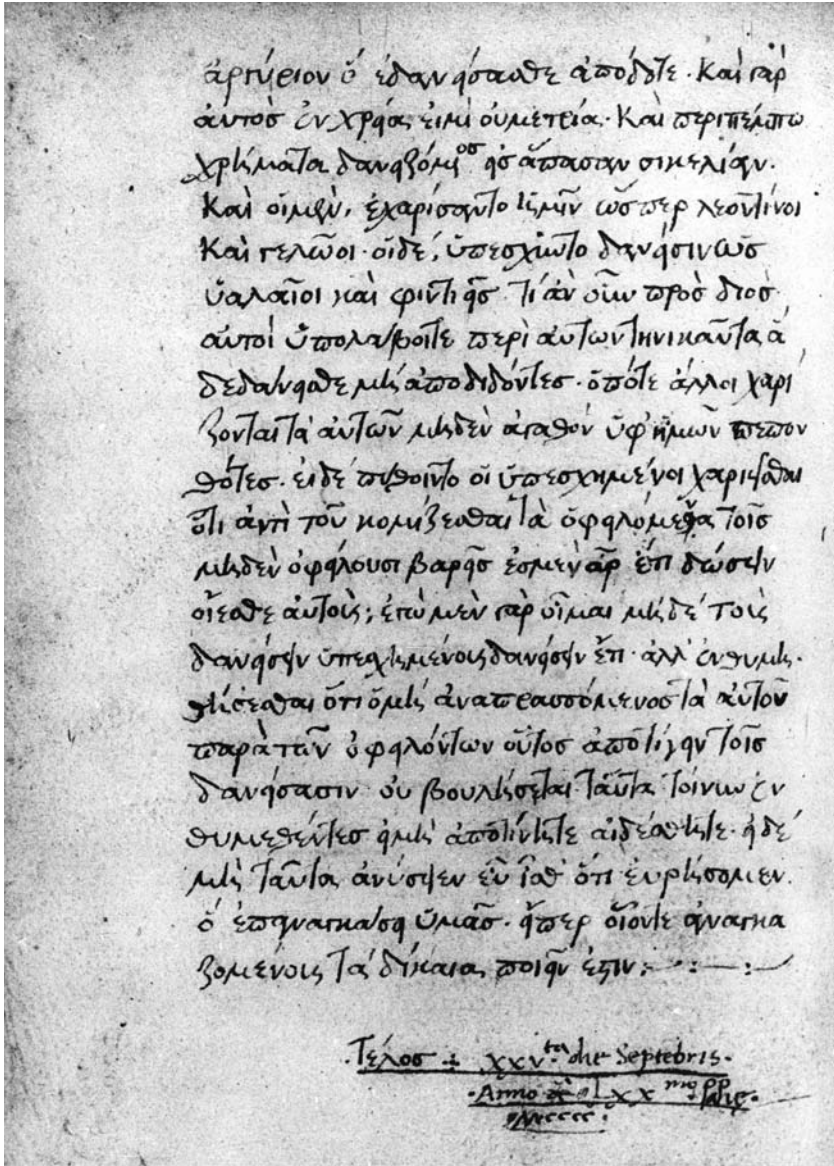 ἀργύριον ὅ ἐδανείσασθε ἀπόδοτε. Καὶ γὰρ
αὐτὸς ἐν χρείᾳ εἰμὶ οὐ μετρία. Καὶ περιπέμπω
χρήματα δανειζόμενος εἰς ἅπασαν σικελίαν.
Καὶ οἱ μὲν, ἐχαρίσαντο ἡμῖν ὥσπερ λεοντίνοι
Καὶ γελῶοι· οἱ δέ, ὑπέσχοντο δανείσιν ὡς
ὑαλαῖοι καὶ φιντιεῖς. τί ἂν οὖν πρὸς διὸς
αὐτοὶ ὑπολάβοιτε περὶ αὐτῶν τηνικαῦτα ἃ
δεδάνεισθε μὴ ἀποδιδόντες. ὁπότε ἄλλοι χαρί
ζονται τὰ αὐτῶν μηδὲν ἀγαθὸν ὑφ' ἡμῶν πεπον
θότες. εἰ δὲ πύθοιντο οἱ ὑπεσχημένοι χαρίσασθαι
ὅτι ἀντὶ τοῦ κομίζεσθαι τὰ ὀφειλόμενα τοῖς
μηδὲν ὀφείλουσι βαρεῖς ἐσμὲν ἆρ' ἔτι δώσειν
οἴεσθε αὐτούς; ἐγὼ μὲν γὰρ οἶμαι μὴ δὲ τοὺς
δανείσειν ὑπεσχημένους δανείσειν ἔτι. ἀλλ' ἐνθυμη
θήσεσθαι ὅτι ὁ μὴ ἀναπρασσόμενος τὰ αὐτοῦ
παρὰ τῶν ὀφειλόντων οὗτος ἀποτίνειν τοῖς
δανείσασιν οὐ βουλήσεται. ταῦτα τοίνυν ἐν
θυμεθέντες εἰ μὴ ἀποτίνητε αἰδέσθητε. εἰ δὲ
μὴ ταῦτα ἀνύσειεν εὖ ἴσθ' ὅτι εὑρήσομεν
ὃ ἐπαναγκάσει ὑμᾶς. εἴπερ οἷόντε ἀναγκα
ζομένους τὰ δίκαια ποιεῖν ἐστιν:
Τέλος XXV ta die Septebris.
Anno LXX mo
Mcccc